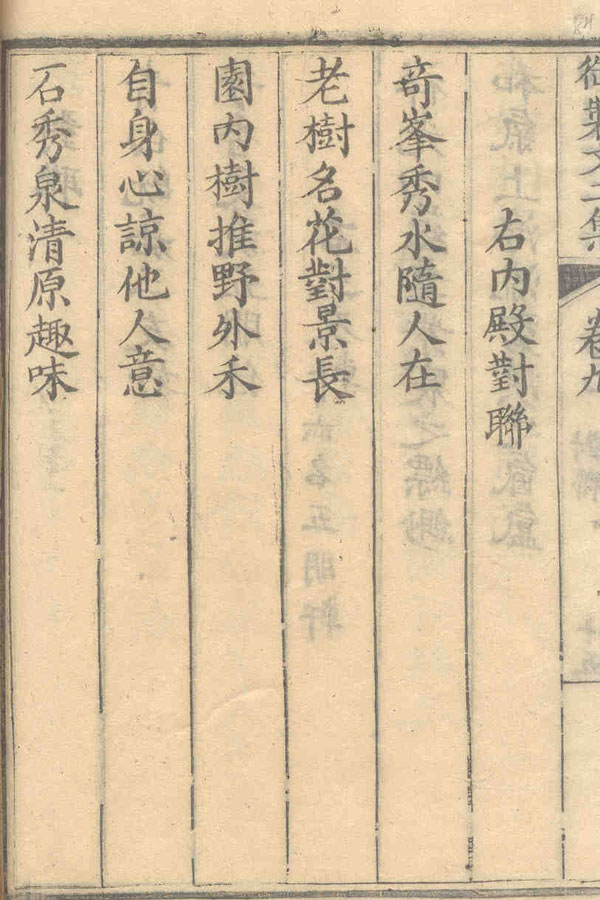 御製文二集 卷九
右內殿對聯
奇峯秀水隨人在
老樹名花對景長
園內樹推野外禾
自身心諒他人意
石秀泉清原趣味